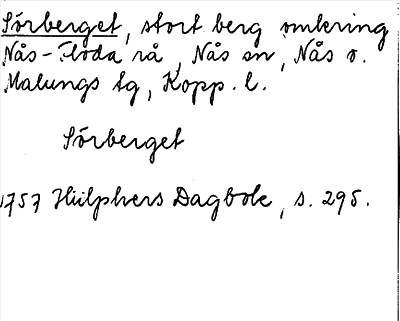 Sörberget, stort berg omkring
Nås-Floda rå, Nås sn, Nås o.
Malungs tg, Kopp. l.
Sörberget
1757 Hülphers Dagbok, s. 295.